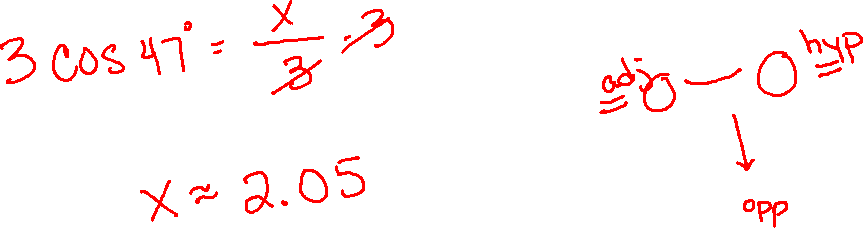 3 cos 47° = x/3 · 3
x ≈ 2.05
adj
hyp
opp